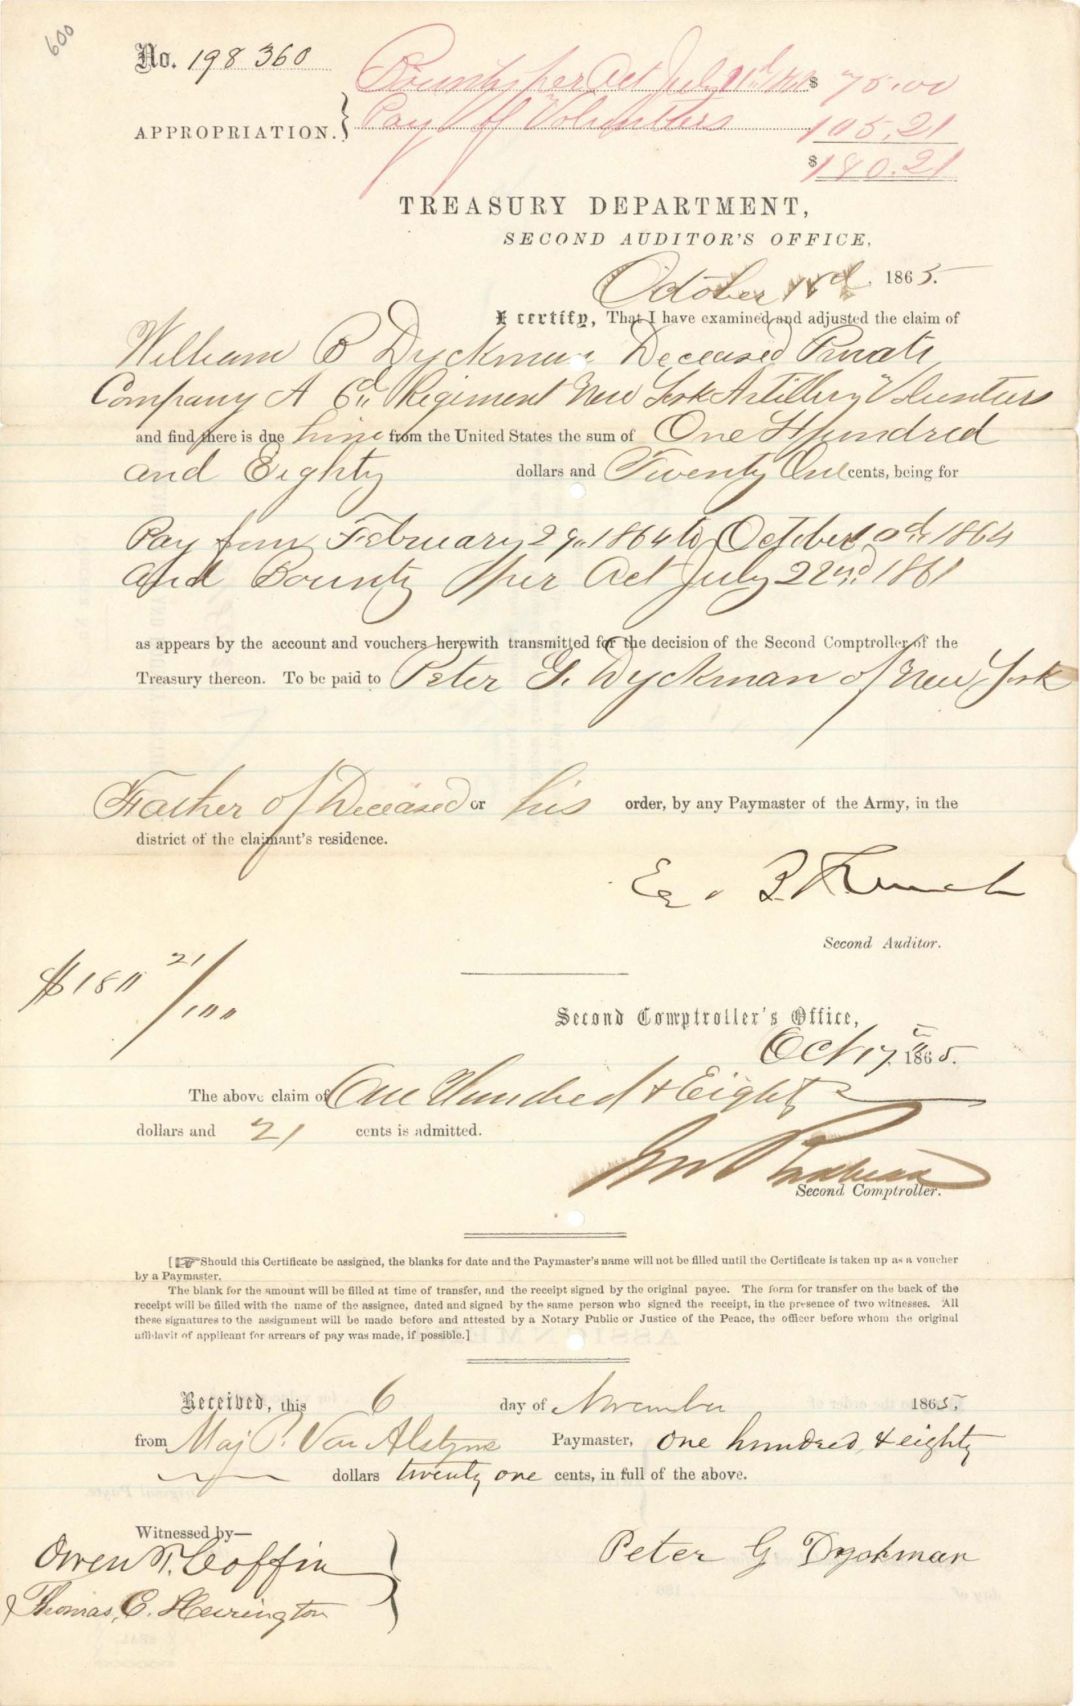 600
No. 198 360
APPROPRIATION. } Bounty per Act July $ 75.00
Pay of Volunteers 105.21
$180.21
TREASURY DEPARTMENT,
SECOND AUDITOR'S OFFICE,
October 1865.
I certify, That I have examined and adjusted the claim of
William B Dyckman Deceased Private
Company A 6" Regiment New York Artillery Volunteers
and find there is due him from the United States the sum of One Hundred
and Eighty dollars and Twenty One cents, being for
Pay from February 29" 1864 to October 1864
and Bounty per Act July 22nd 1861
as appears by the account and vouchers herewith transmitted for the decision of the Second Comptroller of the
Treasury thereon. To be paid to Peter G. Dyckman of New York
Father of Deceased or his order, by any Paymaster of the Army, in the
district of the claimant's residence.
E. B. French
Second Auditor.
$180 21/100
Second Comptroller's Office,
Oct 17 1865.
The above claim of One Hundred & Eighty
dollars and 21 cents is admitted.
Second Comptroller.
[☞Should this Certificate be assigned, the blanks for date and the Paymaster's name will not be filled until the Certificate is taken up as a voucher
by a Paymaster.
The blank for the amount will be filled at time of transfer, and the receipt signed by the original payee. The form for transfer on the back of the
receipt will be filled with the name of the assignee, dated and signed by the same person who signed the receipt, in the presence of two witnesses. All
these signatures to the assignment will be made before and attested by a Notary Public or Justice of the Peace, the officer before whom the original
affidavit of applicant for arrears of pay was made, if possible.]
Received, this 6 day of November 1865.
from Maj P. Van Alstyne Paymaster, one hundred & eighty
dollars twenty one cents, in full of the above.
Witnessed by—
Owen T. Coffin
Peter G Dyckman
Thomas, C. Herrington